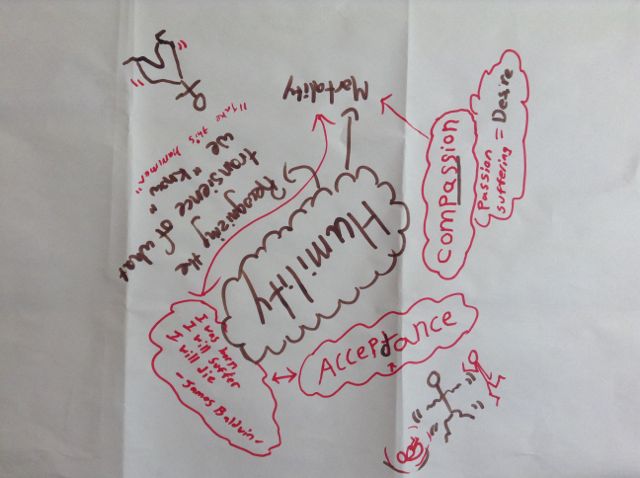 Mortality
"Take this hammer"
Recognizing the
transience of what
we "know"
Humility
compassion
Passion
suffering = Desire
Acceptance
I was born
I will suffer
I will die
- James Baldwin -